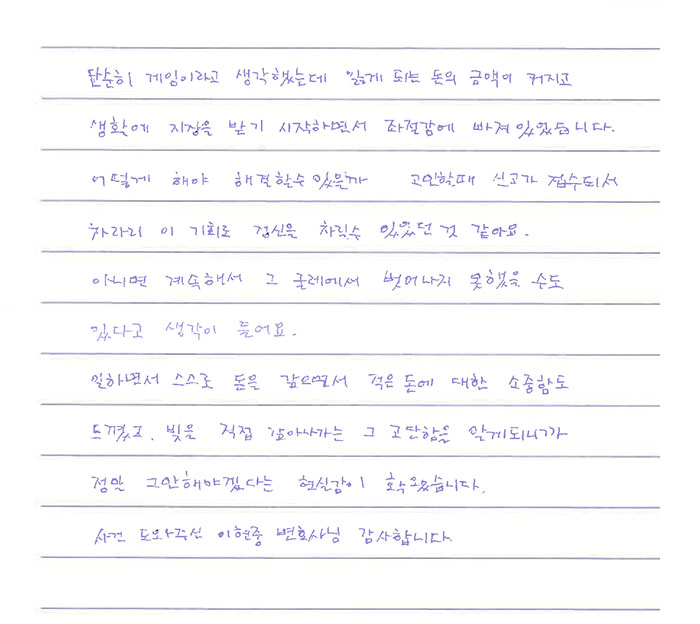 단순히 게임이라고 생각했는데 잃게 되는 돈의 금액이 커지고
생활에 지장을 받기 시작하면서 좌절감에 빠져있었습니다.
어떻게 해야 해결할수 있을까 고민할때 신고가 접수되서
차라리 이 기회로 정신을 차릴수 있었던 것 같아요.
아니면 계속해서 그 굴레에서 벗어나지 못했을 수도
있다고 생각이 들어요.
일하면서 스스로 돈을 갚으면서 적은 돈에 대한 소중함도
느꼈고, 빚을 직접 갚아나가는 그 고단함을 알게되니까
정말 그만해야겠다는 현실감이 확 왔습니다.
사건 도와주신 이현중 변호사님 감사합니다